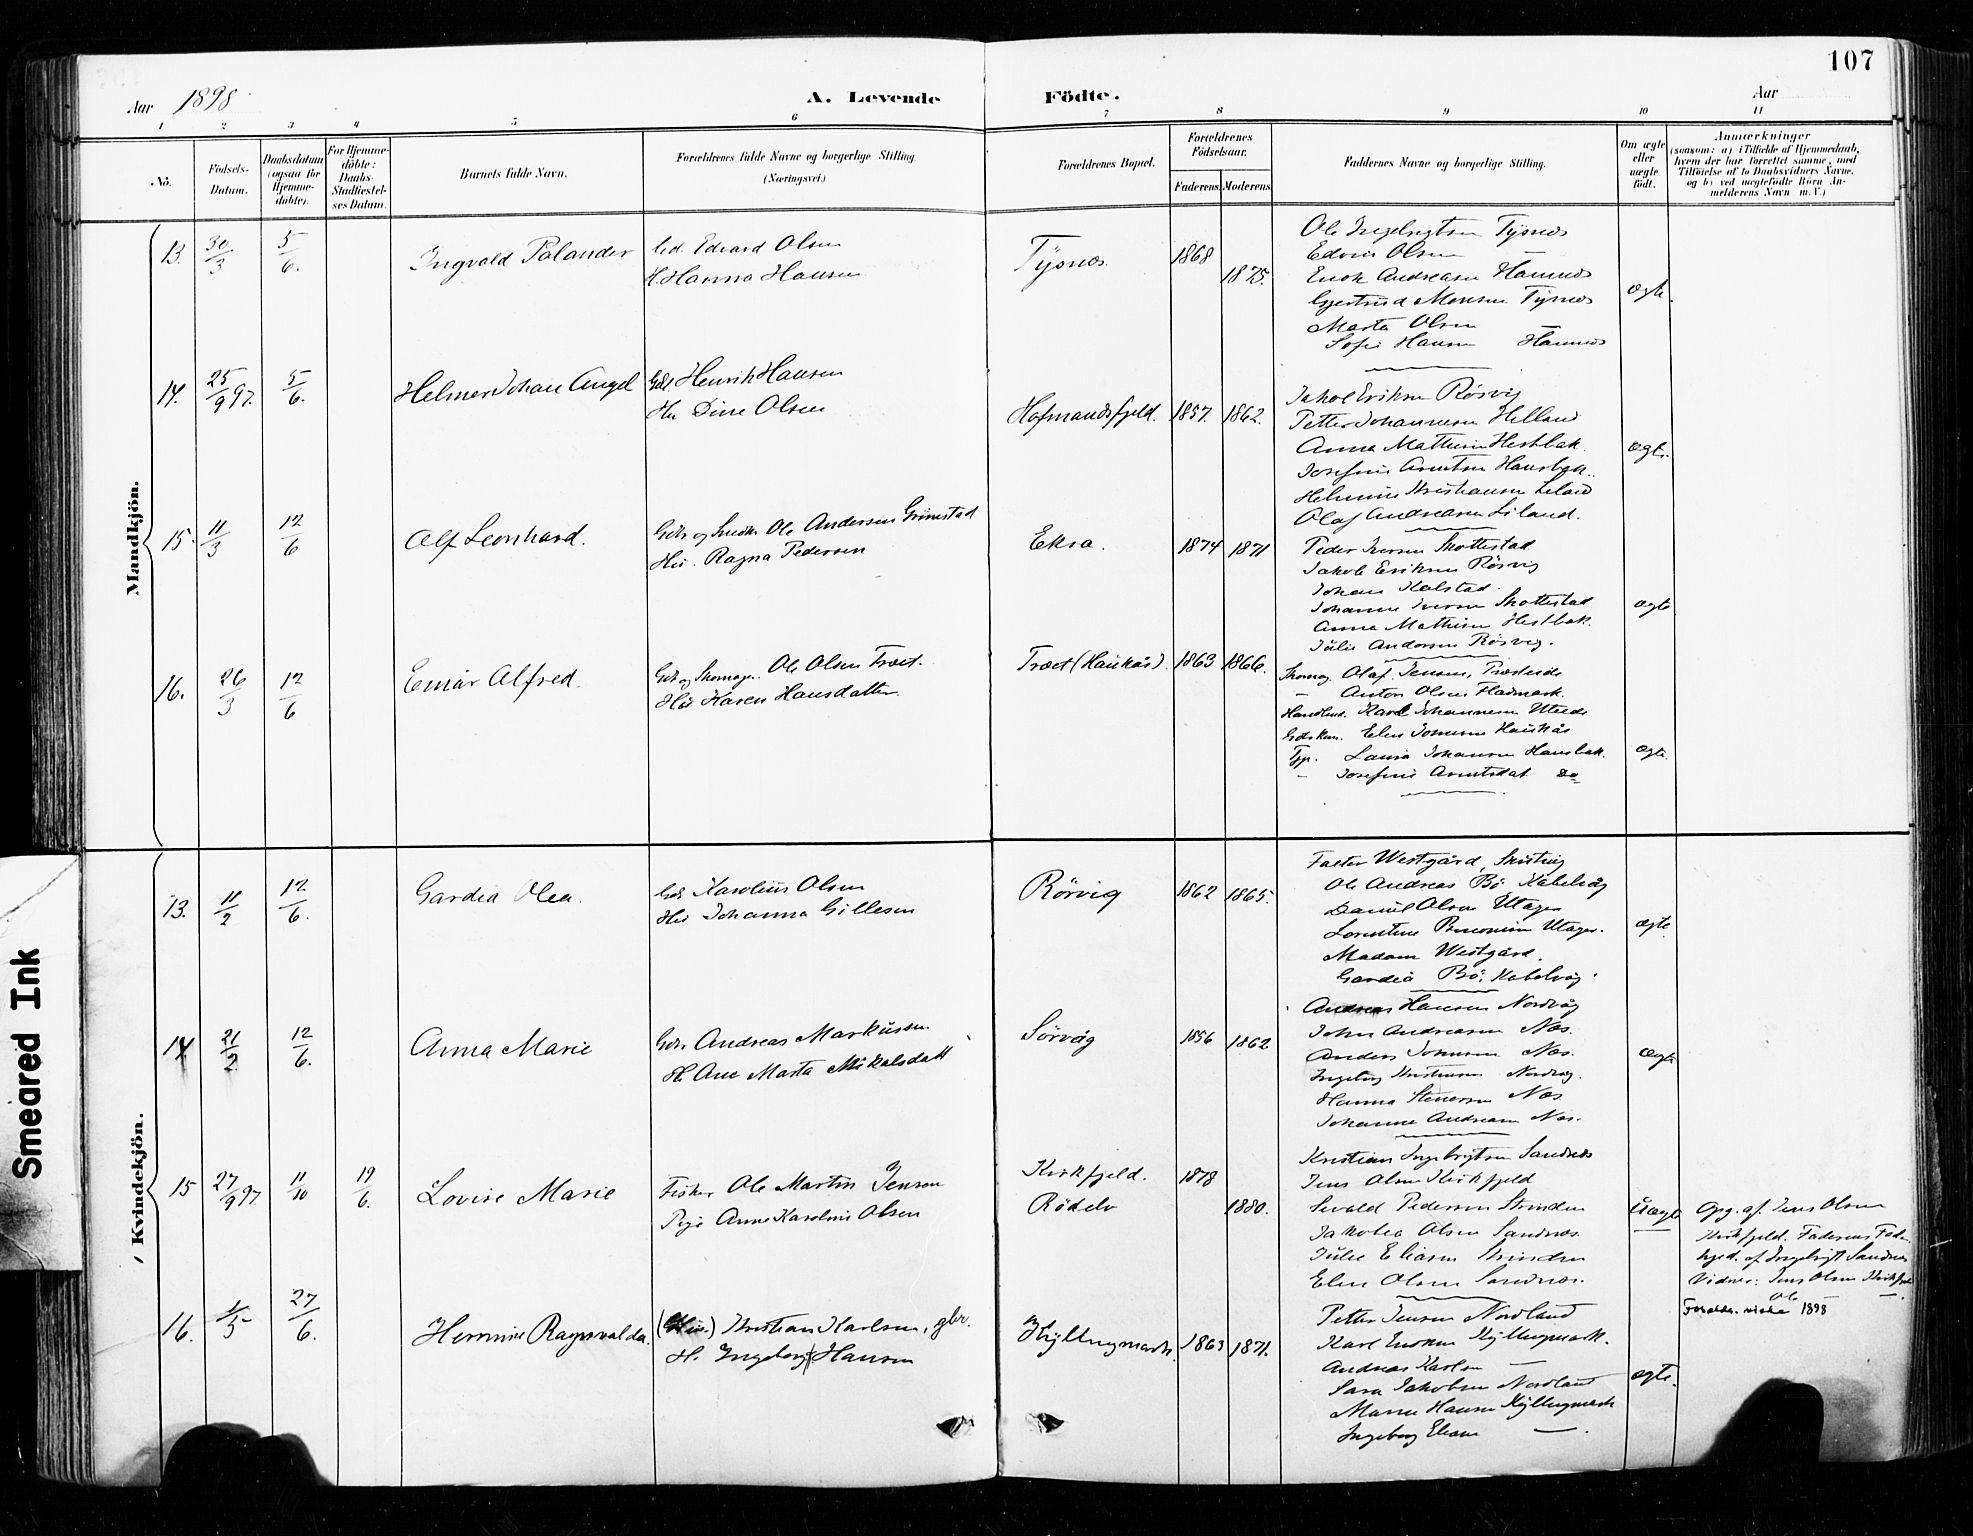 107
Aar 1898
A. Levende Födte.
Aar
1 2 3 4 5 6 7 8 9 10 11
No.
Födsels-Datum.
Daabsdatum (ogsaa for Hjemmedöbte).
For Hjemmedöbte: Daabs-Stadfæstelses Datum.
Barnets fulde Navn.
Forældrenes fulde Navne og borgerlige Stilling. (Næringsvei.)
Forældrenes Bopæl.
Forældrenes Födselsaar.
Faderens. Moderens.
Faddernes Navne og borgerlige Stilling.
Om ægte eller uægte födt.
Anmærkninger
(saasom: a) i Tilfælde af Hjemmedaab, hvem der har forrettet samme, med Tilföielse af to Daabsvidners Navne, og b) ved uægtefödte Börn Anmelderens Navn m. V.)
Mandkjön.
13. 30/3 5/6. Ingvald Palander
Edvard Olsen
H. Hanna Hansen
Tysnes. 1868 1875.
Ole Ingebrigtsen Tysnes
Edvin Olsen —
Enok Andreasen Hamnes
Gjertrud Monsen Tysnes
Marta Olsen —
Sofie Hansen Hamnes
ægte.
14. 25/9 97. 5/6. Helmer Johan Angel
Gbr. Henrik Hansen
Hu Dine Olsen
Hofmandsfjeld. 1857. 1862.
Jakob Eriksen Rösvig
Petter Johannesen Helland
Anna Mathisen Hestbak.
Josefine Arntsen Hansbak.
Helmine Kristiansen Leland
Olaf Andreasen Liland.
ægte.
15. 11/3 12/6 Alf Leonhard.
Gbr og Smed Ole Andersen Grimstad
Hu. Ragna Pedersen
Ekra. 1874 1871
Peder Iversen Skottestad
Jakob Eriksen Rösvig
Johan Kalstad.
Johanne Iversen Skottestad
Anna Mathisen Hestbak.
Julie Andersen Rösvig.
ægte
16. 26/3 12/6 Einar Alfred.
Gbr og Skomag. Ole Olsen Træet.
Hu Karen Hansdatter
Træet (Haukås). 1863 1866.
Skomag. Olaf Jensen, Præsteide
— Anton Olsen Hadmark.
Handlend. Karl Johannesen Uteide
Gbrskon. Elen Jonsens Haukås
Tjp. Laura Johansen Hansbak.
— Josefine Arntsdat Do
ægte.
Kvindekjön.
13. 11/2 12/6. Gardia Olea.
Gbr Karolius Olsen
Hu Johanna Gillesen
Rörvig 1862 1865.
Faktor Westgård, Skutvig
Ole Andreas Bö Kabelvåg
Daniel Olsen Utager
Lorentine Benonisen Utager.
Madam Westgård.
Gardia Bö, Kabelvåg.
ægte
14. 21/2 12/6. Anna Marie
Gbr. Andreas Markussen
H. Ane Marta Mikalsdatt
Sörvåg 1856 1862
Andreas Hansen Nordvåg
John Andreasen Næs.
Anders Jonsen Næs.
Ingeborg Kristensen Nordvåg.
Hanna Steversen Næs
Johanne Andreasen Næs.
ægte
15 27/9 97. 11/10 19/6. Lovise Marie
Fisker Ole Martin Jensen
Pige Anne Karoline Olsen
Kirkfjeld. 1878
Rödelv 1880.
Kristian Ingebrigtsen Sandnes
Jens Olsen Kirkfjeld
Sivald Pedersen Strinden
Jakobea Olsen Sandnes.
Julie Eliasen Strinden
Elen Olsen Sandnes.
Uægte
Opg. af Jens Olsen
Kirkfjeld. Faderens Fader
hjed. af Ingebrigt Sandnes
Vidner: Jens Olsen Kirkfjeld
Ole —.
Foreldr. viede 1898
16. 1/5 27/6. Hermine Ragnvalda.
Kristian Karlsen, gbr.
H. Ingeborg Hansen
Kyllingmark. 1863 1871.
Petter Jensen Nordland
Karl Eriksen Kyllingmark.
Andreas Karlsen —
Sara Jakobsen Nordland
Maren Hansen Kyllingmark
Ingeborg Eliasen —.
ægte.
Smeared Ink